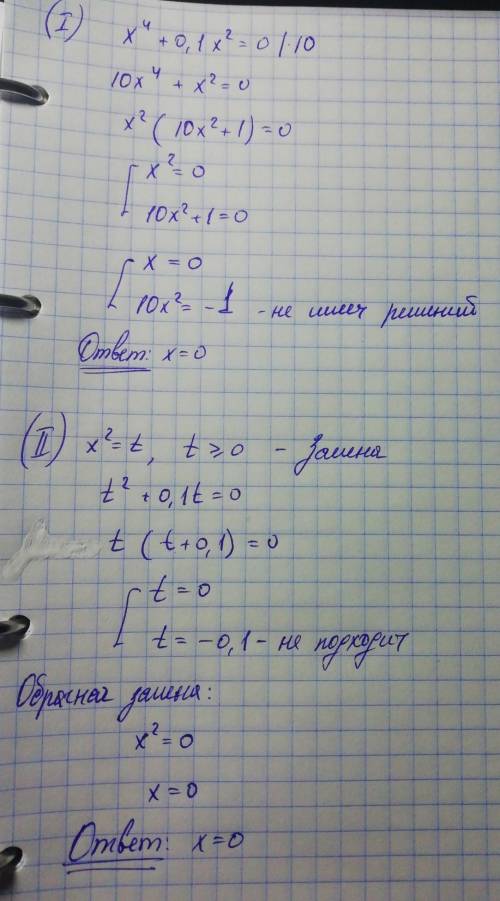 (I) x⁴ + 0,1x² = 0 | · 10
10x⁴ + x² = 0
x² (10x² + 1) = 0
[ x² = 0
10x² + 1 = 0
[ x = 0
10x² = -1 - не имеет решений
Ответ: x = 0
(II) x² = t, t ⩾ 0 - Замена
t² + 0,1t = 0
t (t + 0,1) = 0
[ t = 0
t = -0,1 - не подходит
Обратная замена:
x² = 0
x = 0
Ответ: x = 0